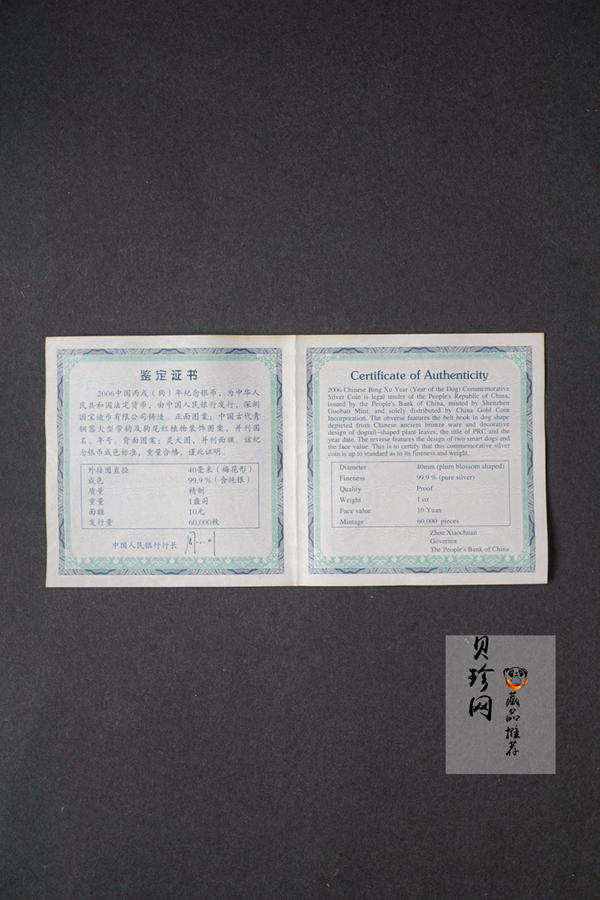 鉴定证书
2006中国丙戌（狗）年纪念银币，为中华人
民共和国法定货币，由中国人民银行发行，深圳
国宝造币有限公司铸造。正面图案：中国古代青
铜器犬型带钩及狗尾红植物装饰图案，并刊国
名、年号。背面图案：灵犬图，并刊面额。该纪
念银币成色标准，重量合格，谨此证明。
外接圆直径 40毫米（梅花形）
成色 99.9%（含纯银）
质量 精制
重量 1盎司
面额 10元
发行量 60,000枚
中国人民银行行长
Certificate of Authenticity
2006 Chinese Bing Xu Year (Year of the Dog) Commemorative
Silver Coin is legal tender of the People's Republic of China,
issued by the People's Bank of China, minted by Shenzhen
Guobao Mint, and solely distributed by China Gold Coin
Incorporation. The obverse features the belt hook in dog shape
depicted from Chinese ancient bronze ware and decorative
design of dogtail-shaped plant leaves, the title of PRC and the
year date. The reverse features the design of two smart dogs and
the face value. This is to certify that this commemorative silver
coin is up to standard as to its fineness and weight.
Diameter 40mm (plum blossom shaped)
Fineness 99.9 % (pure silver)
Quality Proof
Weight 1 oz
Face value 10 Yuan
Mintage 60,000 pieces
Zhou Xiaochuan
Governor
The People's Bank of China
贝珍网
藏品推荐